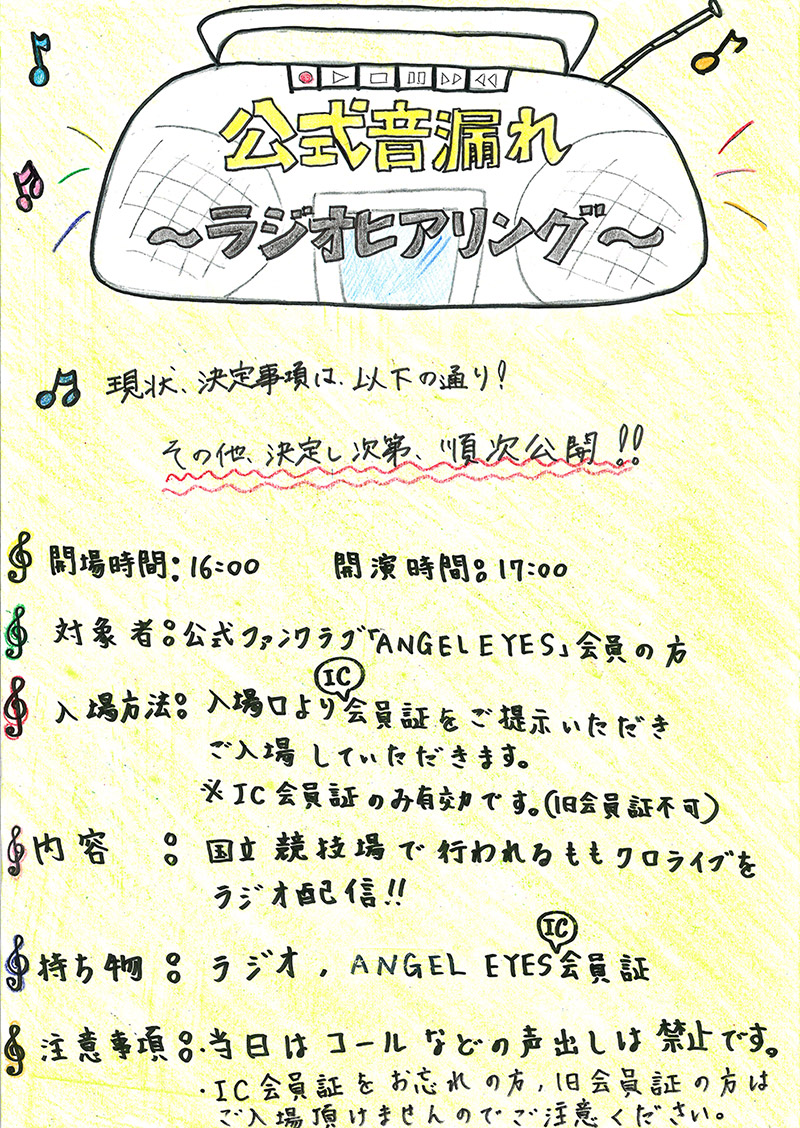 公式音漏れ
～ラジオヒアリング～
現状、決定事項は、以下の通り!
その他、決定し次第、順次公開!!
開場時間:16:00 開演時間:17:00
対象者:公式ファンクラブ「ANGEL EYES」会員の方
入場方法:入場口よりIC会員証をご提示いただき
ご入場していただきます。
※IC会員証のみ有効です。(旧会員証不可)
内容:国立競技場で行われるももクロライブを
ラジオ配信!!
持ち物:ラジオ,ANGEL EYES IC会員証
注意事項:・当日はコールなどの声出しは禁止です。
・IC会員証をお忘れの方,旧会員証の方は
ご入場頂けませんのでご注意ください。